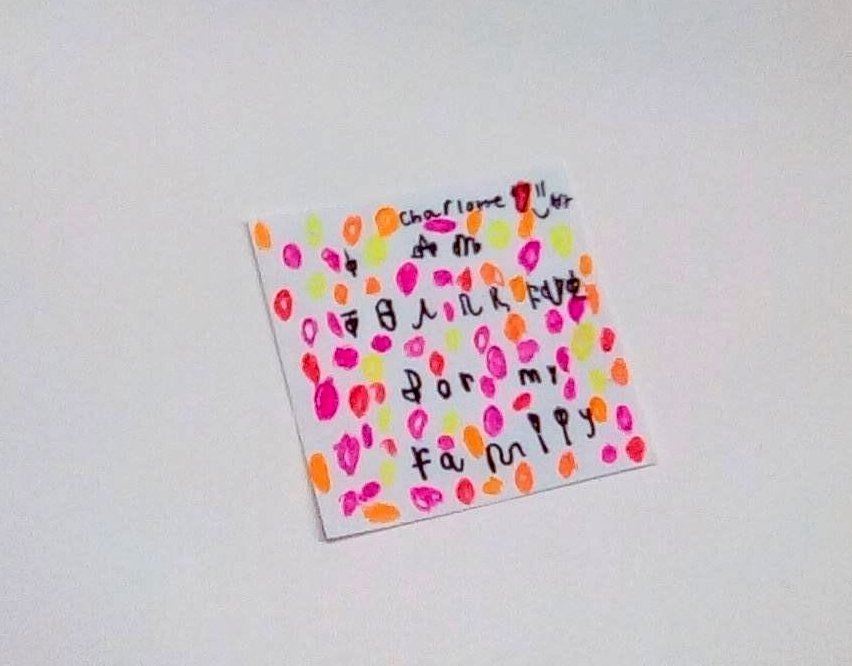 Charlotte
I Am
THINK FUL
For my
Family